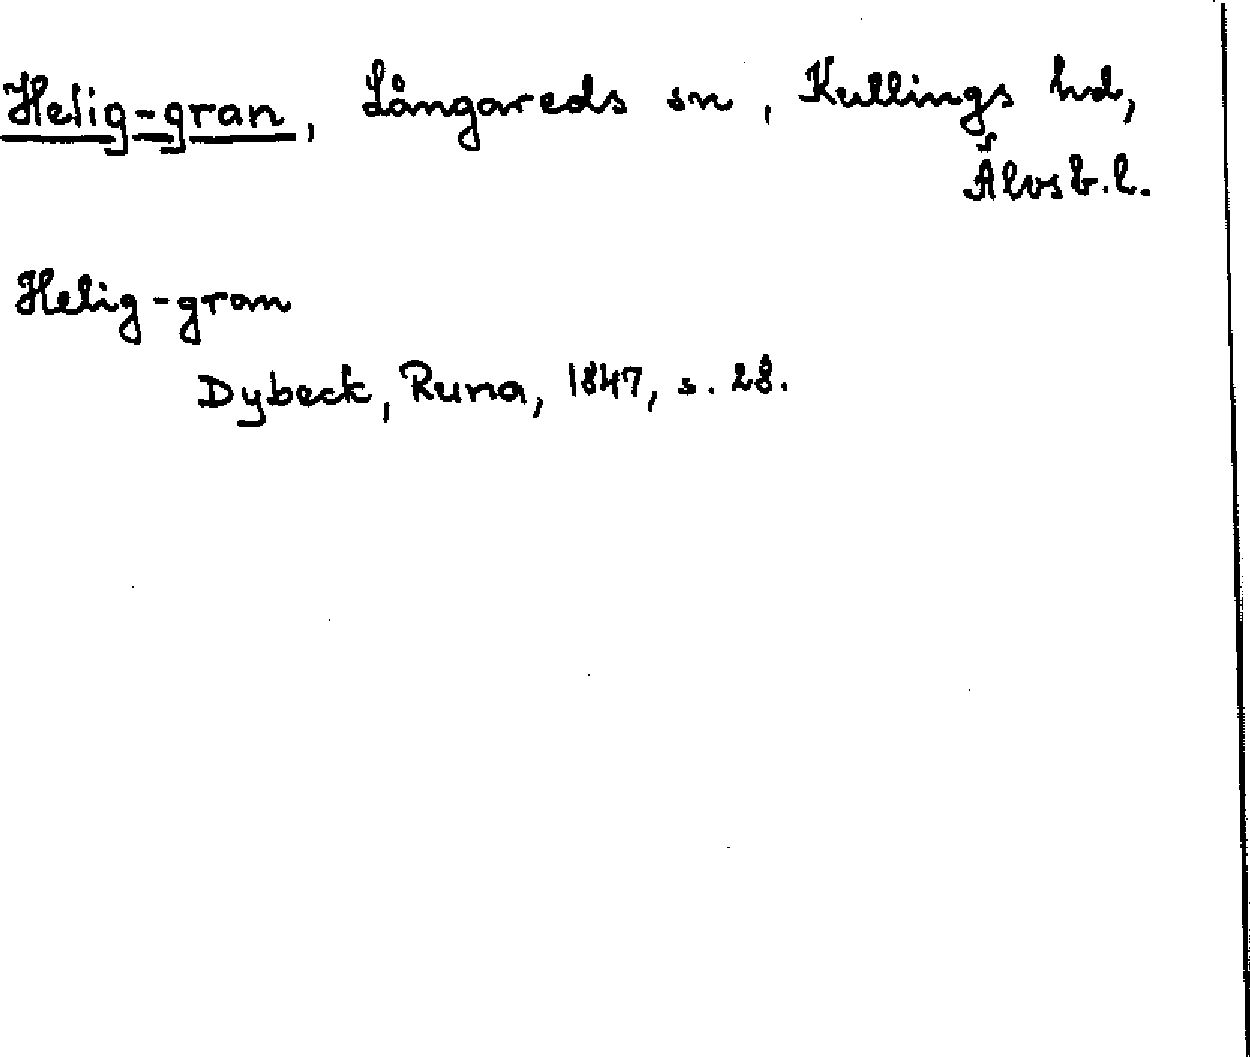 Helig-gran, Långareds sn, Kullings hd,
Älvsb.l.
Helig-gran
Dybeck, Runa, 1847, s. 28.